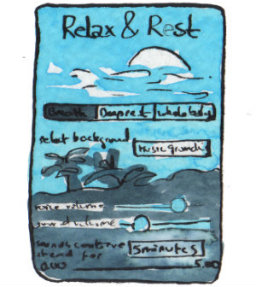 Relax & Rest
Breath Deep rest whole body
select background
Music ground
voice volume
volume
continue
end for 5 minutes
0.00 5.00